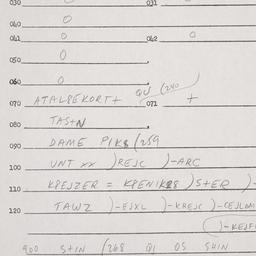 030 031
040 O
041 O 042 O
050 O
060 O
070 ATALPEKORT+ QU (240 071 +
080 TAS+N
090 DAME PIKS (259
100 UNT xx )REJC )-ARC
110 KPEJZER = KPENIKRS )S+ER )-
120 TAWZ )-EJXL )-KREJC )-CEJLOM
)-KEJF
900 S+IN (268 QI OS SHIN